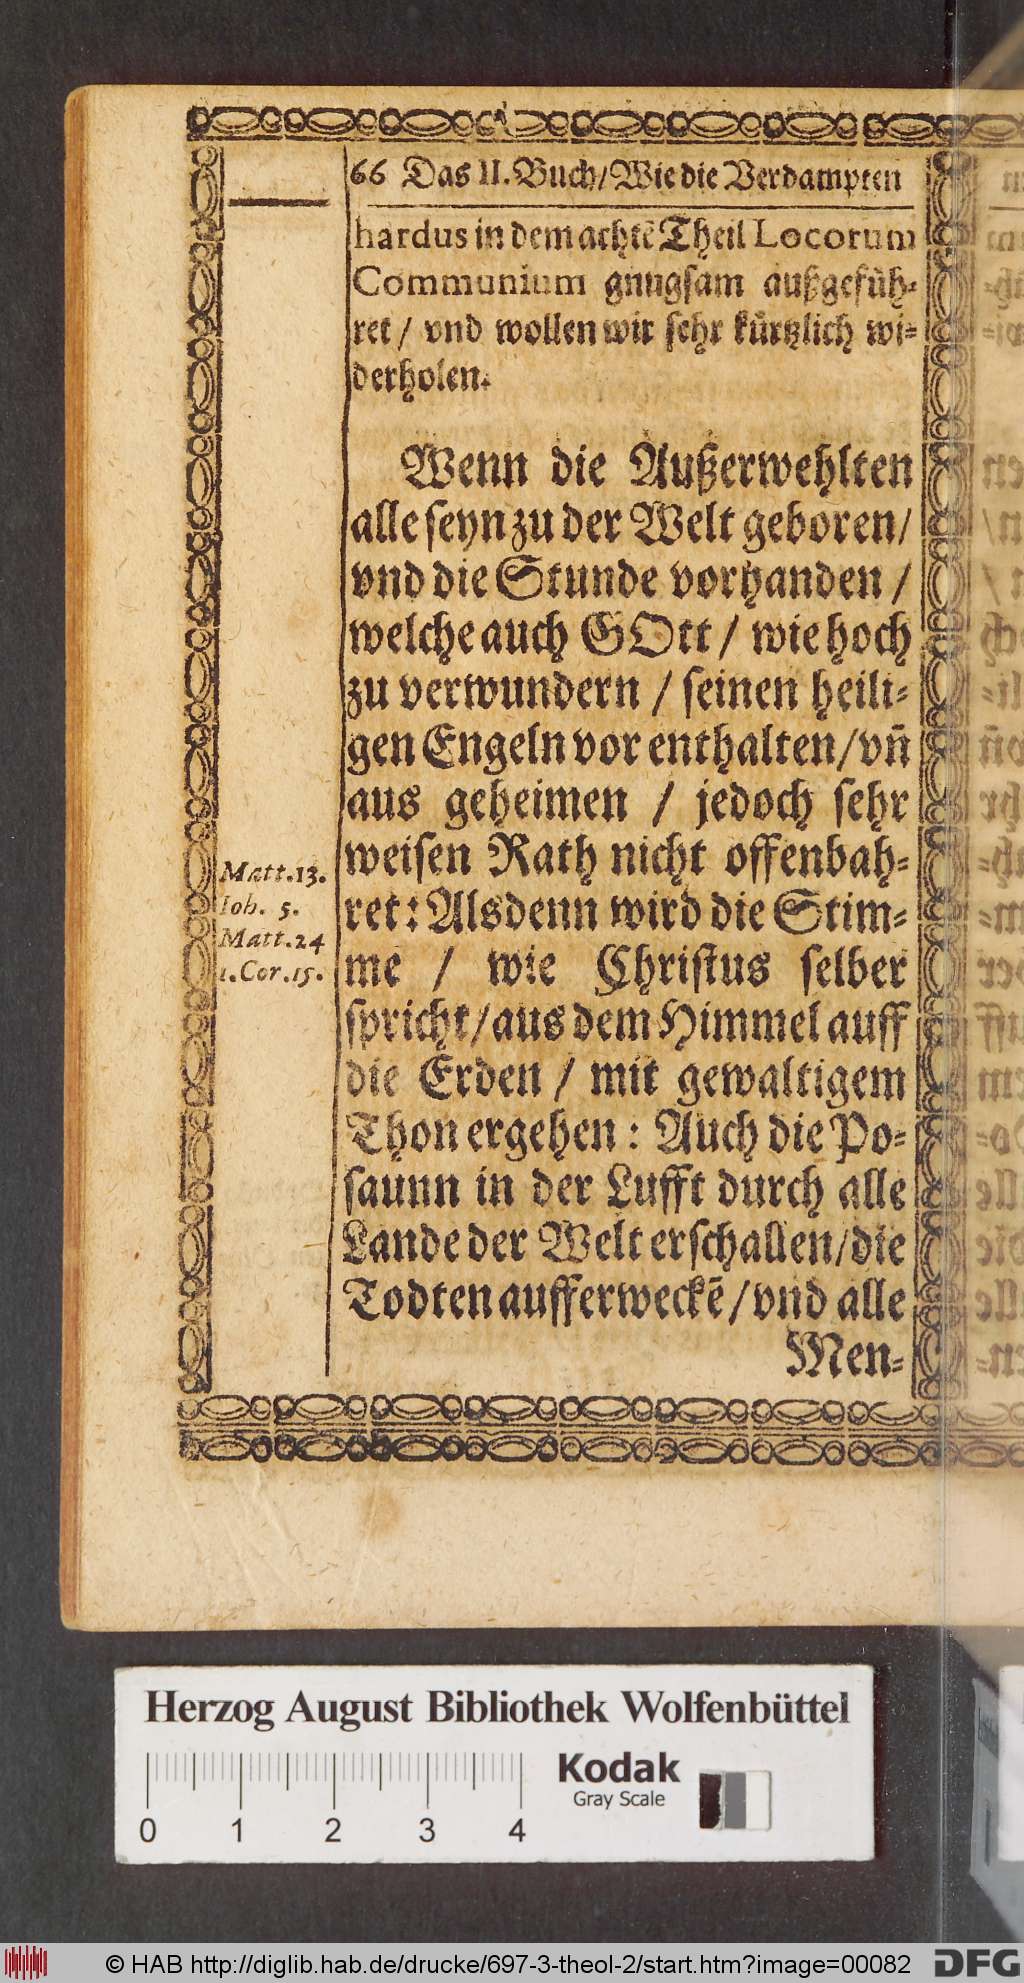 66 Das II. Buch/ Wie die Verdampten
hardus in dem achtẽ Theil Locorum
Communium gnugsam außgefüh-
ret / vnd wollen wir sehr kürtzlich wi-
derholen.
Wenn die Außerwehlten
alle seyn zu der Welt geboren/
vnd die Stunde vorhanden /
welche auch GOtt / wie hoch
zu verwundern / seinen heili-
gen Engeln vor enthalten/ vñ
aus geheimen / jedoch sehr
weisen Rath nicht offenbah-
ret: Alsdenn wird die Stim-
me / wie Christus selber
spricht/ aus dem Himmel auff
die Erden / mit gewaltigem
Thon ergehen : Auch die Po-
saunn in der Lufft durch alle
Lande der Welt erschallen/ die
Todten aufferweckẽ / vnd alle
Men-
Matt. 13.
Ioh. 5.
Matt. 24
1. Cor. 15.
Herzog August Bibliothek Wolfenbüttel
Kodak
Gray Scale
0 1 2 3 4
© HAB http://diglib.hab.de/drucke/697-3-theol-2/start.htm?image=00082
DFG